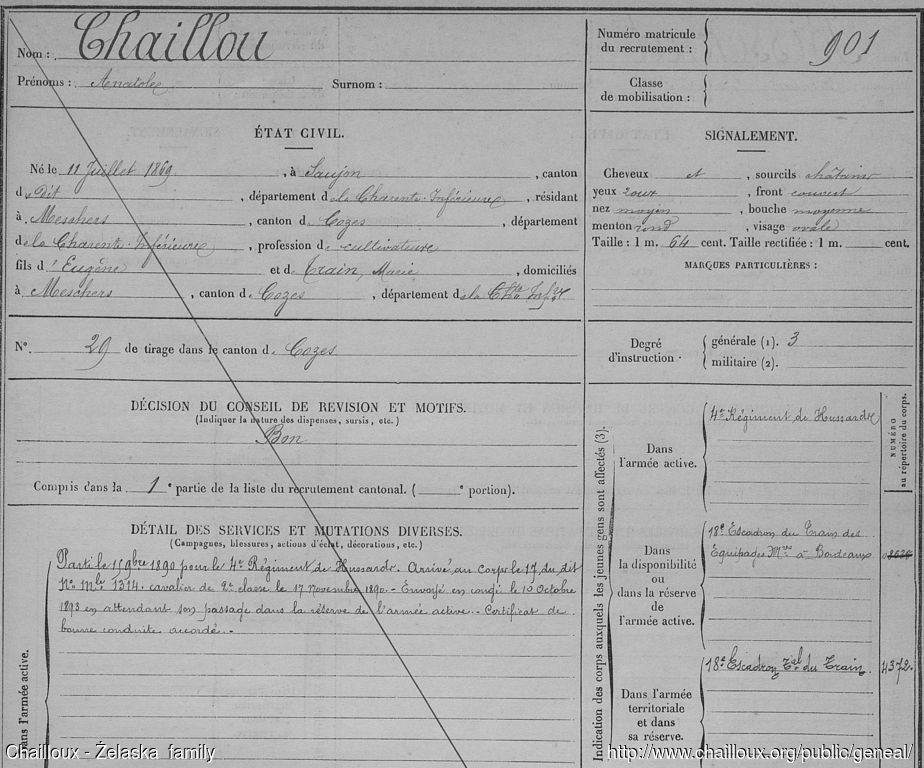 Nom : Chaillou
Prénoms : Anatole Surnom :
Numéro matricule du recrutement : 901
Classe de mobilisation :
ÉTAT CIVIL.
Né le 11 Juillet 1869, à Saujon, canton
du Dit, département de la Charente Inférieure, résidant
à Meschers, canton de Cozes, département
de la Charente Inférieure, profession de cultivateur
fils d'Eugène et de Train, Marie, domiciliés
à Meschers, canton de Cozes, département de la Chte Infre
N° 29 de tirage dans le canton de Cozes
SIGNALEMENT.
Cheveux et, sourcils châtains
yeux roux, front couvert
nez moyen, bouche moyenne
menton rond, visage ovale
Taille : 1 m. 64 cent. Taille rectifiée : 1 m. cent.
MARQUES PARTICULIÈRES :
Degré d'instruction. générale (1). 3
militaire (2).
DÉCISION DU CONSEIL DE REVISION ET MOTIFS.
(Indiquer la nature des dispenses, sursis, etc.)
Bon
Compris dans la 1e partie de la liste du recrutement cantonal. ( e portion).
DÉTAIL DES SERVICES ET MUTATIONS DIVERSES.
(Campagnes, blessures, actions d'éclat, décorations, etc.)
Dans l'armée active.
Parti le 15 9bre 1890 pour le 4e Régiment de Hussards. Arrivé au corps le 17 du dit
No Mle 1314. cavalier de 2e classe le 17 Novembre 1890. - Envoyé en congé le 10 Octobre
1893 en attendant son passage dans la réserve de l'armée active. - Certificat de
bonne conduite accordé. -
Indication des corps auxquels les jeunes gens sont affectés (3).
NUMÉRO au répertoire du corps.
Dans l'armée active.
4e Régiment de Hussards
Dans la disponibilité ou dans la réserve de l'armée active.
18e Escadron du Train des
Équipages Mres à Bordeaux
Dans l'armée territoriale et dans sa réserve.
18e Escadron Tal du Train. 4372.
Chailloux - Želaska family
http://www.chailloux.org/public/geneal/